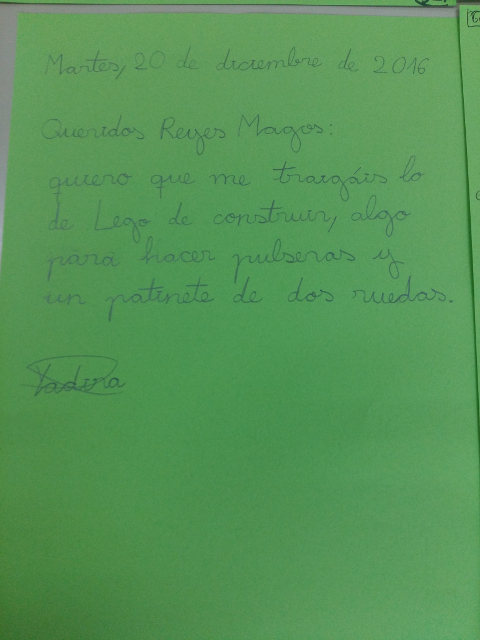 Martes, 20 de diciembre de 2016
Queridos Reyes Magos:
quiero que me traigáis lo
de Lego de construir, algo
para hacer pulseras y
un patinete de dos ruedas.
Yadira